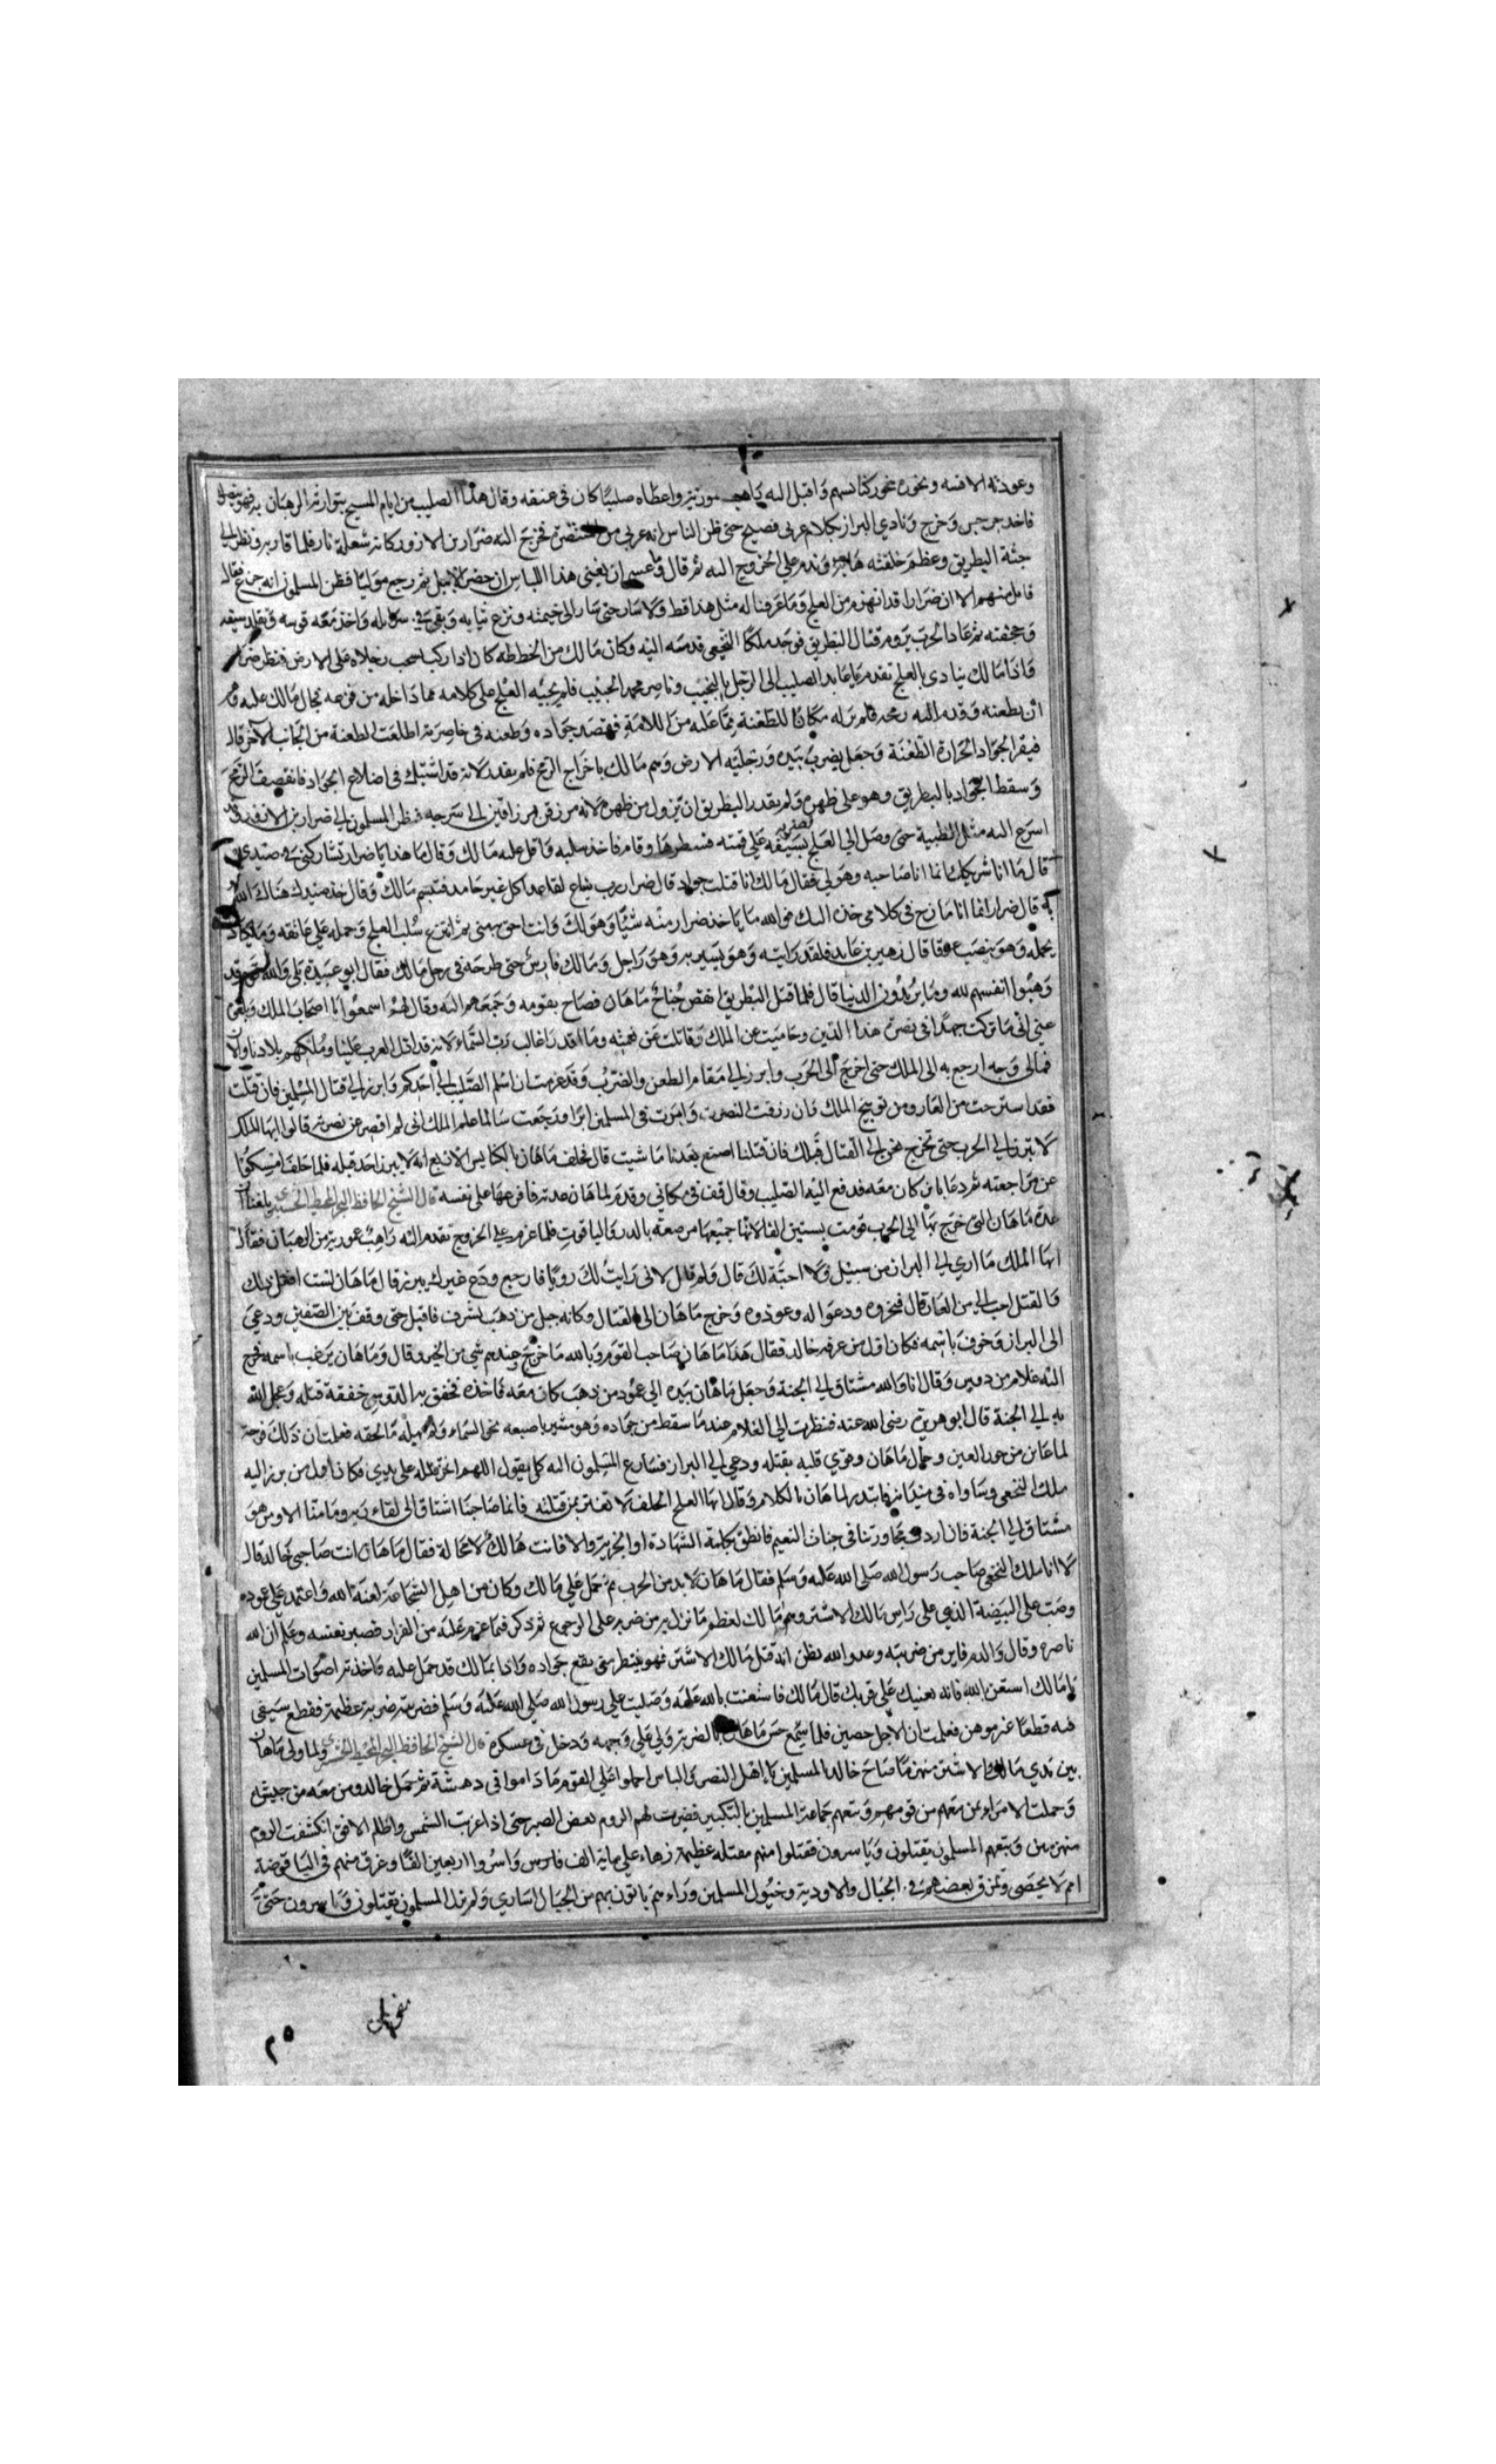 وعوذته الاقسه وبخوره بخور كنائسهم واقبل اليه راهب عموريه واعطاه صليبا كان فى عنقه وقال هذا الصليب من ايام المسيح يتوارثه الرهبان فهو ينصرك
فاخذ جرجس وخرج ونادي البراز بكلام عربى فصيح حتى ظن الناس انه عربى من المتنصره فخرج اليه ضرار بن الازور كانه شعلة نار فلما قاربه ونظر الى
جثة البطريق وعظم خلقته وندم على الخروج اليه ثم قال وما عسى ان يغنى هذا اللباس ان حضر الاجل ثم رجع موليا فظن المسلمون انه جزع فقال
قايل منهم الا ان ضرارا قد انهزم من العلج وما عرفنا له مثل هذا قط ولا سار حتى سار الى خيمته ونزع ثيابه وبقى فى سراويله واخذ معه قوسه وتقلد سيفه
وجحفته ثم عاد الى الحرب يروم قتال البطريق فوجد ملكا النخعى قد سبقه اليه وكان مالك من الخطاطه كان اذا ركب تسحب رجلاه على الارض فنظر ضرار
واذا مالك ينادى بالعلج تقدم يا عابد الصليب الى الرجل النجيب وناصر محمد الحبيب فلم يجبه العلج على كلامه مما داخله من فزعه فجال مالك عليه وهم
ان يطعنه وقدم اليه رمحه فلم ير له مكانا للطعنة مما عليه من اللامة فقصد جواده وطعنه فى خاصرته اطلعت الطعنة من الجانب الآخر قال
فنفر الجواد الحرارة الطعنة وجعل يضرب بيديه ورجليه الارض وهم مالك باخراج الرمح فلم يقدر لانه قد اشتبك فى اضلاع الجواد فانقصف الرمح
وسقط الجواد بالبطريق وهو على ظهره ولم يقدر البطريق ان يزول من ظهره لانه مزرفن بزرافين الى سرجه فنظر المسلمون الى ضرار بن الازور وقد
اسرع اليه مثل الظبية حتى وصل الى العلج فضربه بسيفه على قمته فشطرها وقام فاخذ سلبه فاقبل عليه مالك وقال ما هذا يا ضرار تشاركنى فى صيدى
قال ما انا شريكك انما انا صاحبه وهو لى فقال مالك انا قتلت جواده قال ضرار رب ساع لقاعد اكل غير حامد فتبسم مالك وقال خذ صيدك هناك الله
به قال ضرار انما انا مازح فى كلامى خذه اليك فوالله ما ياخذ ضرار منه شيئا وهو لك وانت احق به منى ثم انتزع سلب العلج وحمله على عاتقه وما يكاد
يحمله وهو يتصبب عرقا قال زهير بن عابد فلقد رايته وهو يسير به وهو راجل ومالك فارس حتى طرحه فى رحل مالك فقال ابو عبيدة بلى والله قوم قد
وهبوا انفسهم لله وما يريدون الدنيا قال فلما قتل البطريق انقض جناح ماهان فصاح بقومه وجمعهم اليه وقال لهم اسمعوا يا اصحاب الملك وبلغوه
عنى انى ما تركت جهدا فى نصرة هذا الدين وحاميت عن الملك وقاتلت عن نعمته وما اقدر اغالب رب السماء لانه قد اقبل العرب علينا وملكهم بلادنا والان
فمالى وجه ارجع به الى الملك حتى اخرج الى الحرب وابرز الى مقام الطعن والضرب وقد عزمت ان اسلم الصليب الى احدكم وابرز الى قتال المسلمين فان قتلت
فقد استرحت من العار ومن توبيخ الملك فان رزقت النصرة واثرت فى المسلمين اثرا ورجعت سالما علم الملك انى لم اقصر عن نصرته قالوا ايها الملك
لا تبرز الى الحرب حتى نخرج نحن الى القتال قبلك فان قتلنا اصنع بعدنا ما شيت قال فحلف ماهان بالكنايس الاربع انه لا يبرز احد قبله فلما حلف امسكوا
عن مراجعته ثم دعا بابن كان معه فدفع اليه الصليب وقال قف فى مكانى وقدم لماهان عدته فافرغها على نفسه قال الشيخ الحافظ بلغنا ان
عدة ماهان التى خرج بها الى الحرب قومت بستين الفا لانها جميعها مرصعة بالدر والياقوت فلما عزم على الخروج تقدم اليه راهب عمورية من الرهبان فقال
ايها الملك ما ارى لى الى البراز من سبيل ولا احبه لك قال ولم قال لانى رايت لك رويا فارجع ودع غيرك يبرز قال ماهان لست افعل ذلك
والقتل احب الى من العار قال فبخروه ودعوا له وعوذوه وخرج ماهان الى القتال وكانه جبل من ذهب يشرف فاقبل حتى وقف بين الصفين ودعى
الى البراز وخوف باسمه فكان اول من عرفه خالد فقال هذا ماهان صاحب القوم وبالله ما خرج وعندهم شى من الخير قال وماهان يرغب باسمه فخرج
اليه غلام من دوس وقال انا والله مشتاق الى الجنة وجعل ماهان بيده الى عمود من ذهب كان معه فاخذه فخفق به الدوسى خفقة قتله وعجل الله
به الى الجنة قال ابو هريرة رضى الله عنه فنظرت الى الغلام عندما سقط من جواده وهو مشير باصبعه نحو السماء ولم يهيله ما لحقه فعلمت ان ذلك فرحة
لما عاين من حور العين وجال ماهان وقوى قلبه بقتله ودعى الى البراز فسارع المسلمون اليه كل يقول اللهم اجر قتله على يدى فكان اول من برز اليه
ملك النخعى وساواه فى ميدانه فابتدر لماهان بالكلام وقال ايها العلج الحلف لا تفتر بمن قتلته فانما صاحبنا اشتاق الى لقاء ربه وما منا الا من هو
مشتاق الى الجنة فان اردت مجاورتنا فى جنات النعيم فانطق بكلمة الشهادة او الجزية والا فانت هالك لا محالة فقال ماهان انت صاحبى خالد قال
لا انا ملك النخعى صاحب رسول الله صلى الله عليه وسلم فقال ماهان لا بد من الحرب ثم حمل على مالك وكان من اهل الشجاعة لعنه الله واعتمد على عموده
وضب على البيضة الذى على راس مالك الاشتر وهم مالك لعظم ما نزل به من ضربه على الرجوع ثم ذكر فيما عزم عليه من الفرار فصبر نفسه وعلم ان الله
ناصره وقال والدم فاير من ضربته وعدو الله يظن انه قتل مالك الاشتر فهو ينتظر متى يقع جواده واذا بمالك قد حمل عليه فاخذته اصوات المسلمين
يا مالك استعن بالله فانه يعينك على قربك قال مالك فاستعنت بالله عليه وصليت على رسول الله صلى الله عليه وسلم فضربته ضربة عظيمة فقطع سيفى
فيه قطعا غير موهن فعلمت ان الاجل حصين فلما سمع حس ماهان بالضربة ولى على وجهه ودخل فى عسكره قال الشيخ الحافظ ولما ولى ماهان
بين يدى مالك الاشتر منهزما صاح خالد المسلمين يا اهل النصر والباس احملوا على القوم ما داموا فى دهشة ثم حمل خالد ومن معه من جيشه
وحملت الامراء بمن معهم من قومهم وتبعهم جماعة المسلمين بالتكبير فصبرت لهم الروم بعض الصبر حتى اذا غربت الشمس واظلم الافق انكشفت الروم
منهزمين وتبعهم المسلمون يقتلون وياسرون فقتلوا منهم مقتله عظيمة زهاء على ماية الف فارس واسروا اربعين الفا وغرق منهم فى الياقوصة
امم لا يحصى وتمزق بعضهم فى الجبال والاودية وخيول المسلمين وراءهم ياتون بهم من الجبال اسارى ولم يزل المسلمون يقتلون وياسرون حتى
٢٥